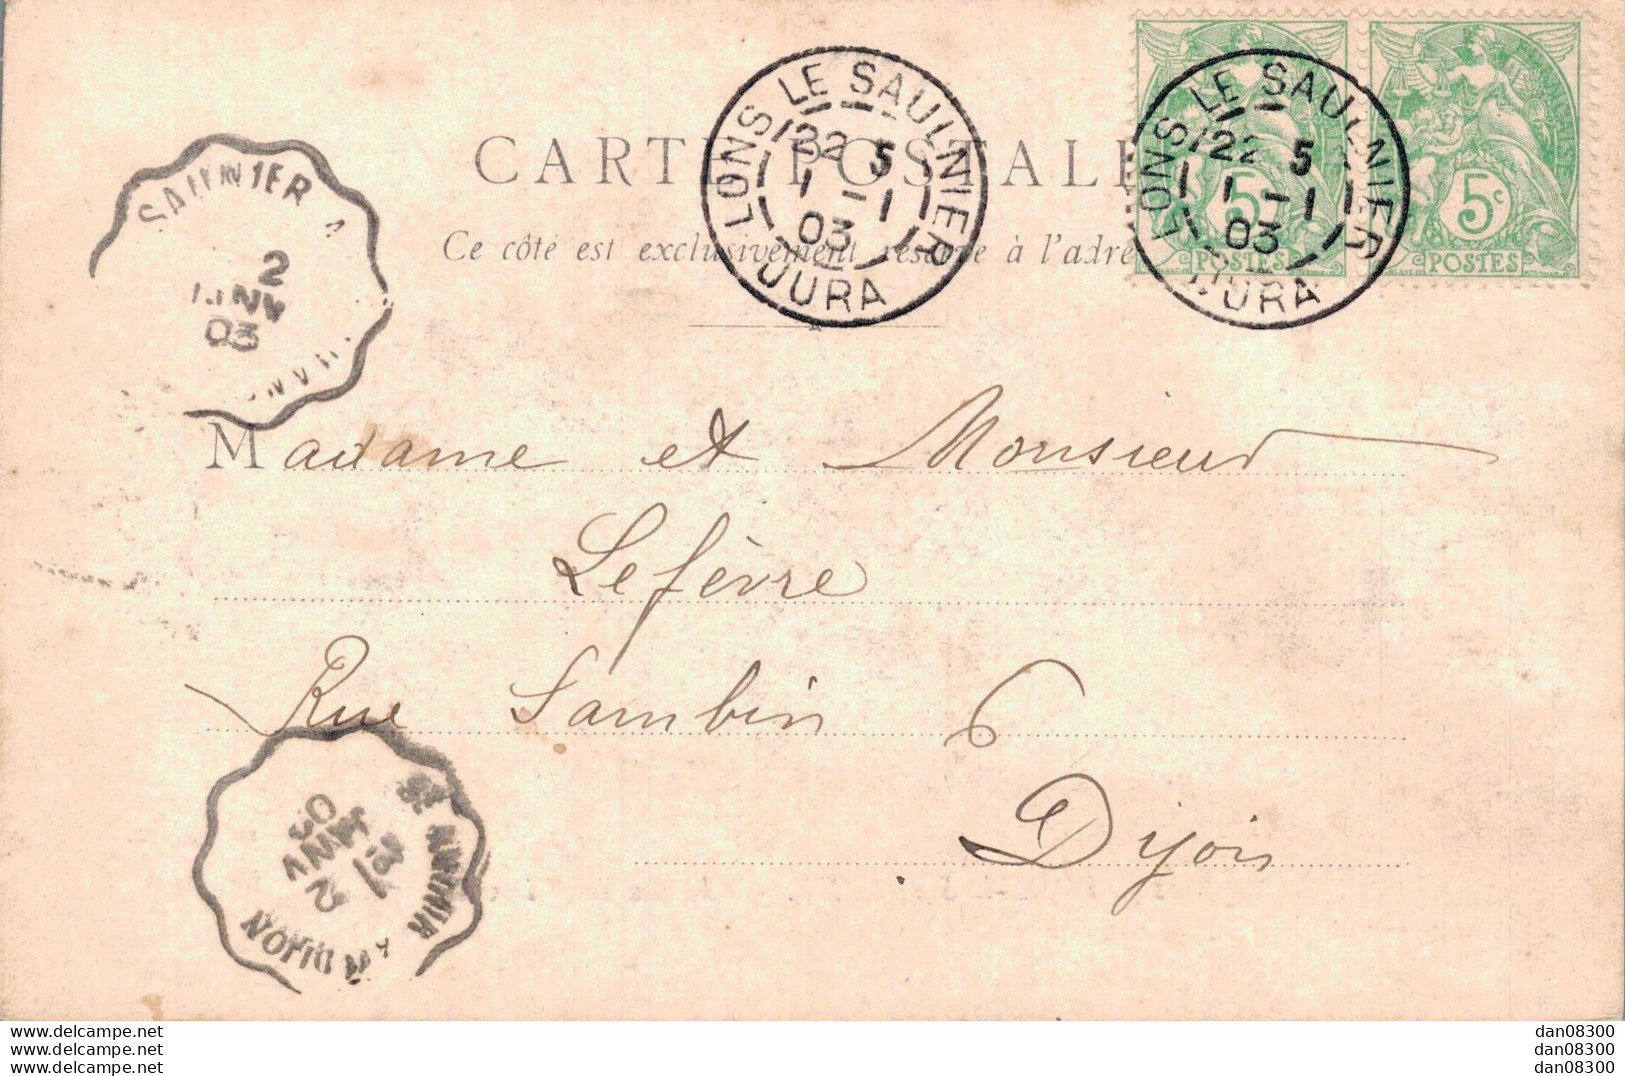 CARTE POSTALE
Ce côté est exclusivement réservé à l'adre
LONS LE SAULNIER
122 5
1 - 1
03
JURA
LONS LE SAULNIER
122 5
1 - 1
03
JURA
5c
POSTES
5c
POSTES
SAULNIER A
2
JANV
03
Madame et Monsieur
Lefèvre
Rue Sambin 6
Dijon
DIJON
2
JANV
03
delcampe.net
delcampe.net
delcampe.net
dan08300
dan08300
dan08300